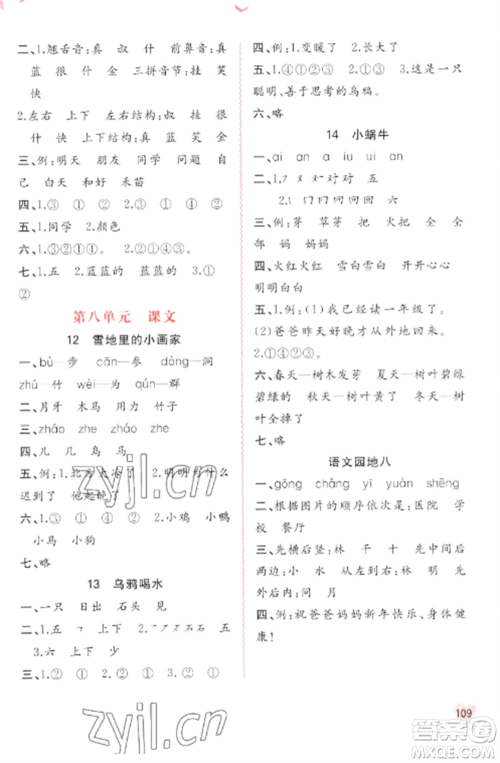 二、1.翘舌音:叔 什 前鼻音:真
蓝 很 什 金 三拼音节:挂 笑
快
2.左右 上下 左右结构:叔 挂 很
什 快 上下结构:真 蓝 笑 金
三、例:明天 朋友 同学 问题 自
己 白天 和好 禾苗
四、①③② ②①③ ①③②
五、1.同学 2.颜色
六、1.③①②④。 2.①③②。
七、1.五 2.蓝蓝的 蓝蓝的 3.①
②
第八单元 课文
12 雪地里的小画家
一、bù—步 cān—参 dòng—洞
zhú—竹 wèi—为 qún—群
二、月牙 木马 用力 竹子
三、zháo zhe zhāo zháo
四、儿 几 鸟 马
迟到了 他起晚了
六、1.③ ④ ① ② 2.小鸡 小鸭
小马 小狗
七、略
13 乌鸦喝水
一、一只 日出 石头 见
五 六 上下
三、① ② ② ①
四、例:1.变暖了 2.长大了
五、1.④①②③ 2.①③ 3.这是一只
聪明、善于思考的乌鸦。
六、略
14 小蜗牛
一、ai an a iu ui an
六
三、例:芽 草芽 把 火把 全 全
部 妈 妈妈
四、火红火红 雪白雪白 ① ①
五、1.例:(1)我已经读一年级了。
(2)爸爸昨天好晚才从外地回来。
2.①③①②
六、春天—树发芽 夏天—树叶碧绿
碧绿的 秋天—树叶黄了 冬天—树叶
全掉了
七、略
语文园地八
一、gōng chǎng yī yuàn shēng
二、根据图片的顺序依次是:医院 学
校 餐厅
三、先横后竖:林 干 十 先中间后
两边:小 水 从左到右:林 们
先外后内:月 问
四、例:祝爸爸妈妈新年快乐、身体健
康!
zyjl.cn
zyjl.cn
109